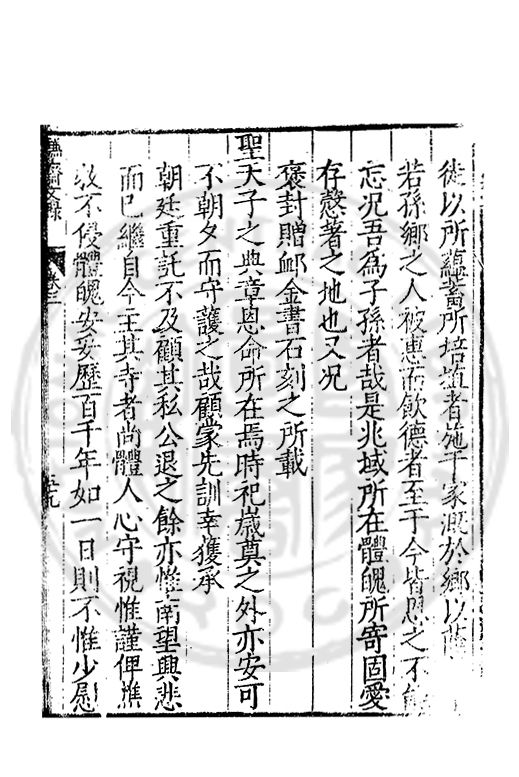 徙以所蘊蓄所培植者施于家溉於鄉以
若孫鄉之人被惠而飲德者至于今皆思之不能
忘况吾為子孫者哉是兆域所在體魄所寄固愛
存慤著之地也又况
褒封贈䘏金書石刻之所載
聖天子之典章恩命所在焉時祀歲奠之外亦安可
不朝夕而守護之哉顧蒙先訓幸獲承
朝廷重託不及顧其私公退之餘亦惟南望興悲
而已繼自今主其寺者尚體人心守視惟謹俾樵
牧不侵體魄安妥歷百千年如一日則不惟少慰
文錄
卷三
五九